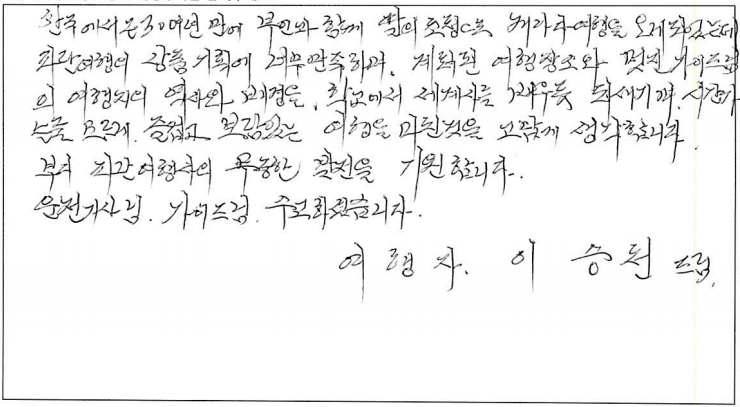 한국에서 온 30여년 만에 부인과 함께 딸의 초청으로 캐나다 여행을 오게 되었는데
파란여행의 상품 기획에 너무 만족하며, 계획된 여행장소와 멋진 가이드님
의 여행지의 역사와 배경을, 학교에서 세계사를 배우듯 되새기며, 시간가
는줄 모르게 즐겁고 보람있는 여행을 마친것을 고맙게 생각합니다.
부디 파란여행사의 무궁한 발전을 기원합니다.
운전기사님. 가이드님. 수고하셨습니다.
여행자. 이승헌 드림.